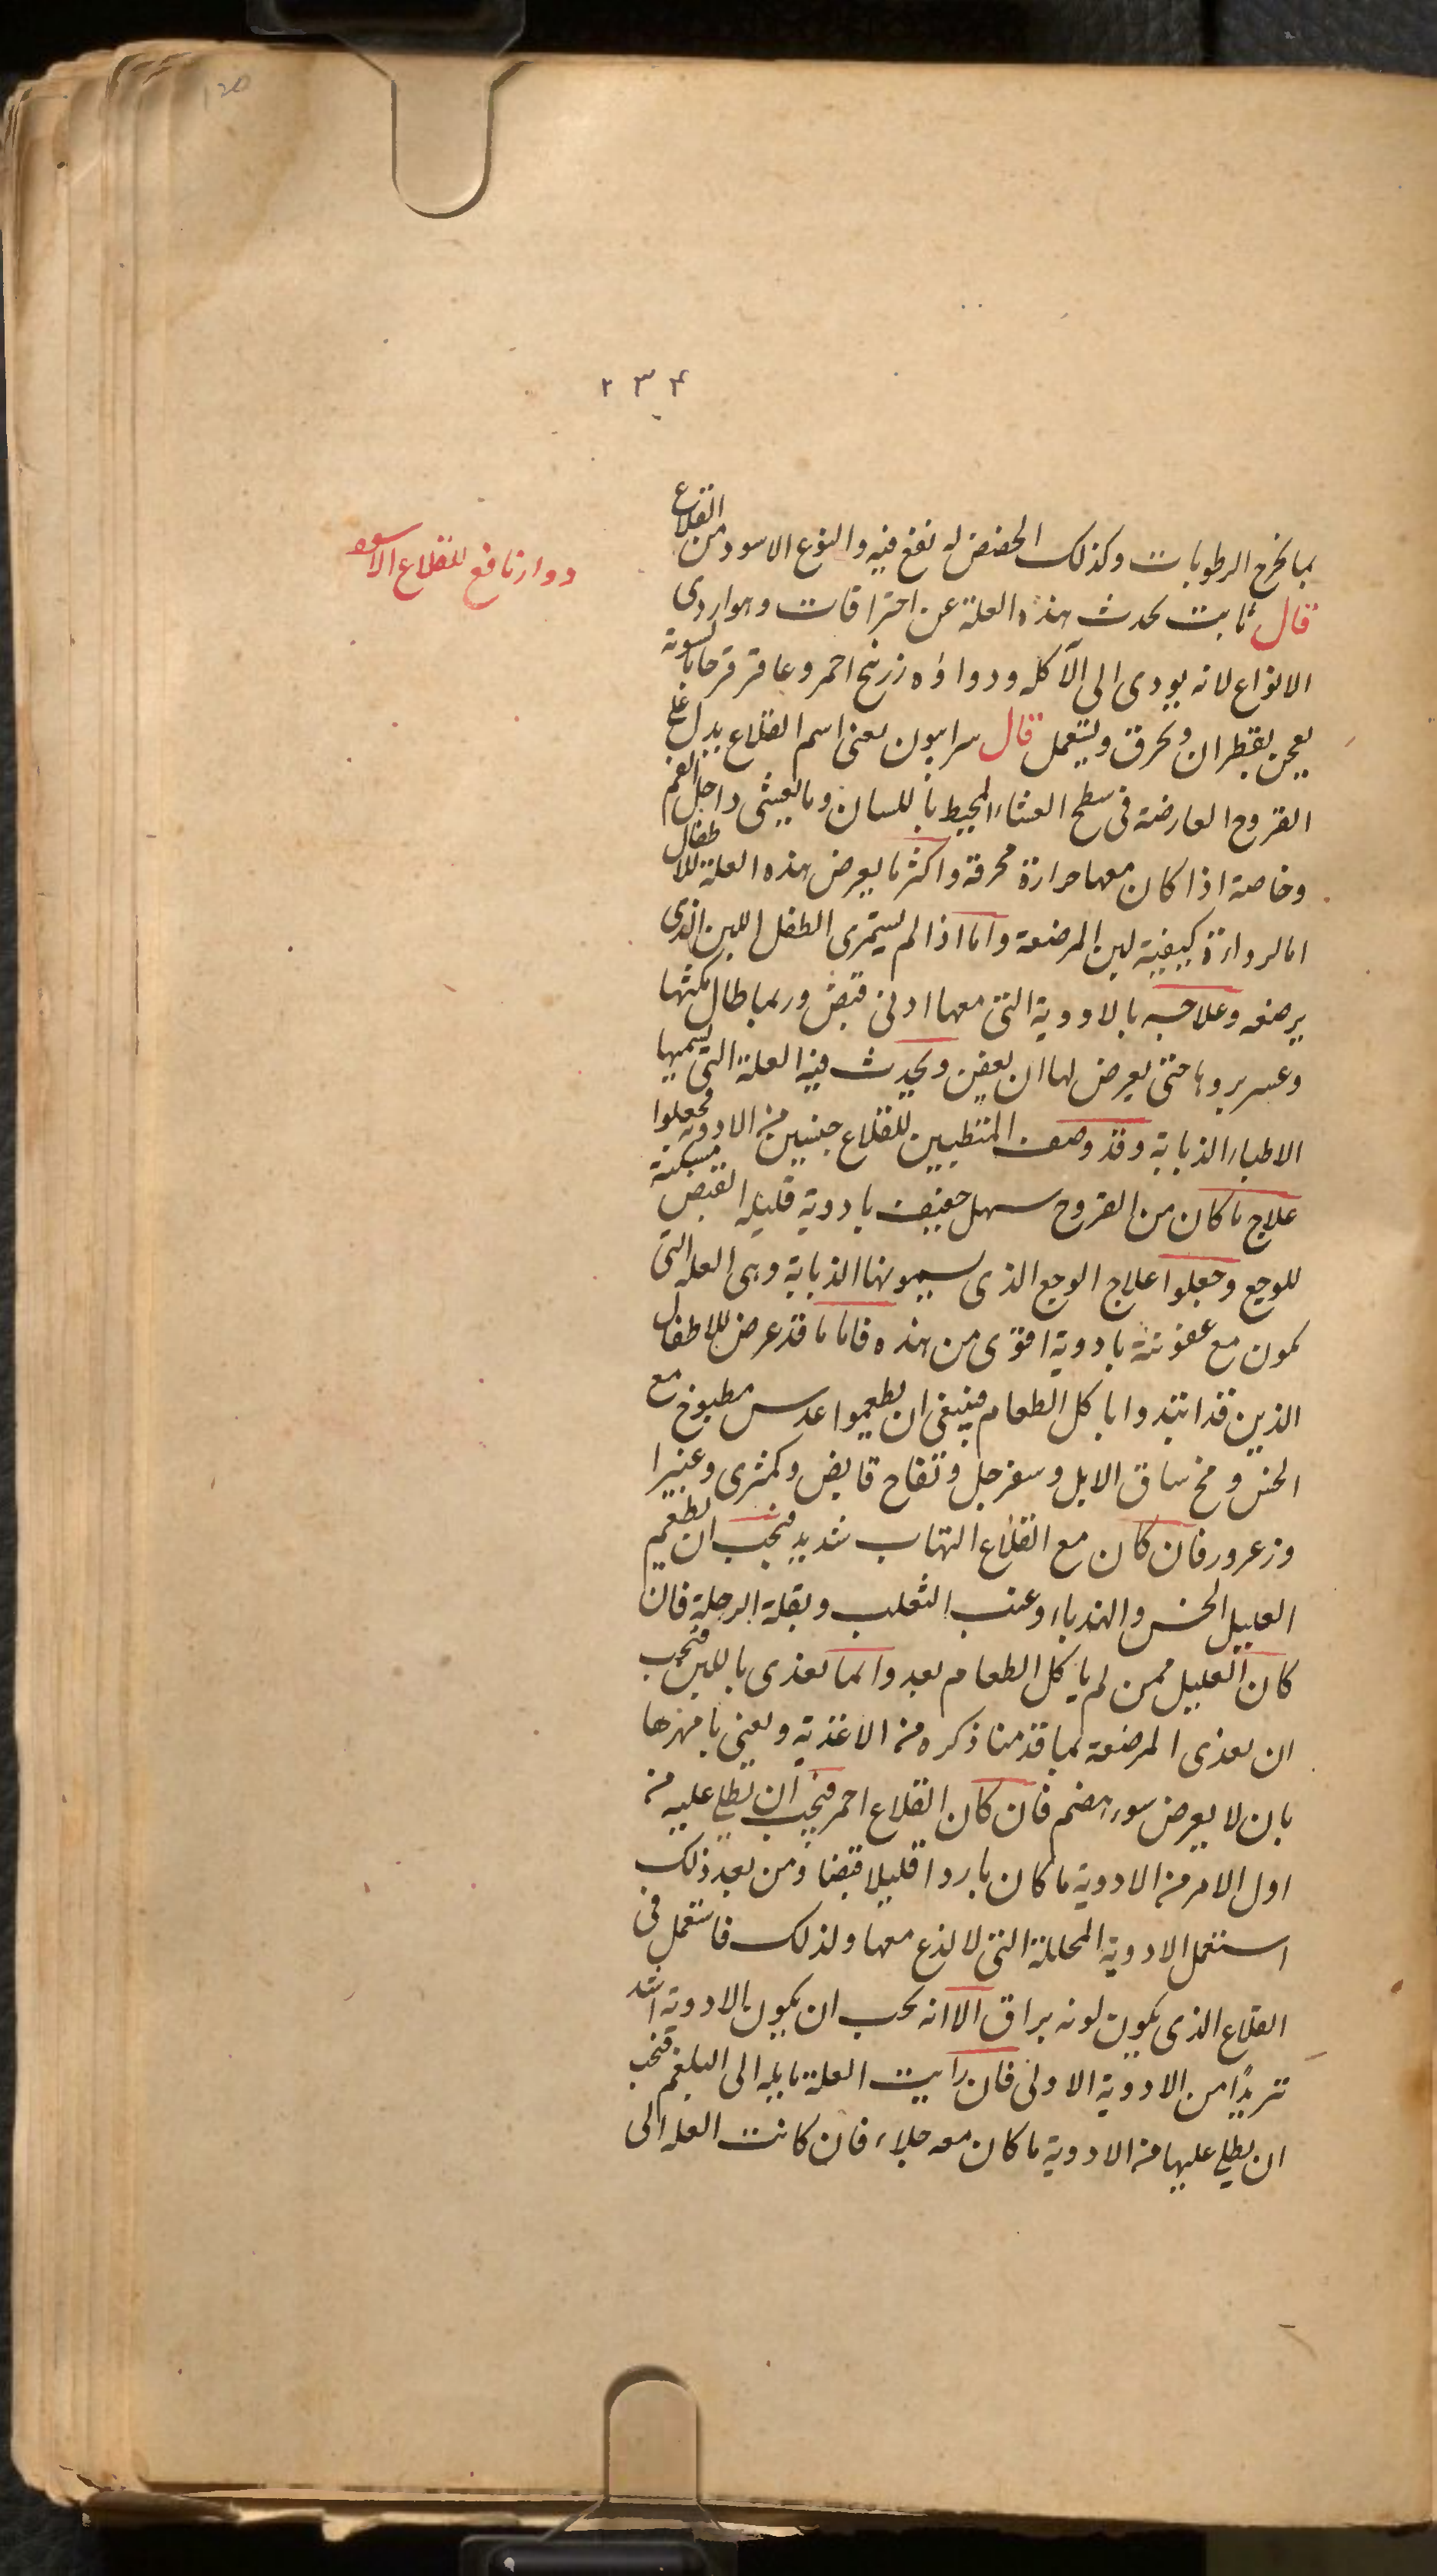 ٢٣۴
بما يخرج الرطوبات وكذلك الحضض له نفع فيه والنوع الاسود من القلاع
دواء نافع للقلاع الاسود
قال ثابت يحدث هذه العلة عن احتراقات وهو اردى
الانواع لانه يودى الى الآكله ودواؤه زرنيخ احمر وعاقر قرحا بالسوية
يعجن بقطران ويحرق ويستعمل قال سرابيون يعنى اسم القلاع يدل على
القروح العارضة فى سطح الغشاء المحيط باللسان وما يغشى داخل الفم
وخاصة اذا كان معها حرارة محرقة واكثر ما يعرض هذه العلة للاطفال
اما لرداءة كيفية لبن المرضعة واما اذا لم يستمرى الطفل اللبن الذى
يرضعه وعلاجه بالادوية التى معها ادنى قبض وربما طال مكثها
وعسر بروها حتى يعرض لها ان يعفن ويحدث فيه العلة التى يسميها
الاطباء الذبابة وقد وصف المتطببين للقلاع جنسين من الادوية فجعلوا
علاج ما كان من القروح سهل خفيف بادوية قليلة القبض مسكنة
للوجع وجعلوا علاج الوجع الذى يسمونها الذبابة وهى العلة التى
يكون مع عفونتة بادوية اقوى من هذه فاما ما قد عرض للاطفال
الذين قد ابتدوا باكل الطعام فينبغى ان يطعموا عدس مطبوخ مع
الخس ومخ ساق الابل وسفرجل وتفاح قابض وكمثرى وغبيرا
وزعرور فان كان مع القلاع التهاب شديد فيجب ان يطعم
العليل الخس والهندباء وعنب الثعلب وبقلة الرجلة فان
كان العليل ممن لم ياكل الطعام بعد وانما يغذى باللبن فيجب
ان يغذى المرضعة بما قدمنا ذكره من الاغذية ويعنى بامرها
بان لا يعرض سوء هضم فان كان القلاع احمر فيجب ان يطلى عليه من
اول الامر من الادوية ما كان باردا قليلا قبضا ومن بعد ذلك
استعمل الادوية المحللة التى لا لذع معها ولذلك فاستعمل فى
القلاع الذى يكون لونه براق الا انه يجب ان يكون الادوية اشد
تبريدًا من الادوية الاولى فان رايت العلة مايله الى البلغم فيجب
ان يطلى عليها من الادوية ما كان معه جلاء فان كانت العله الى